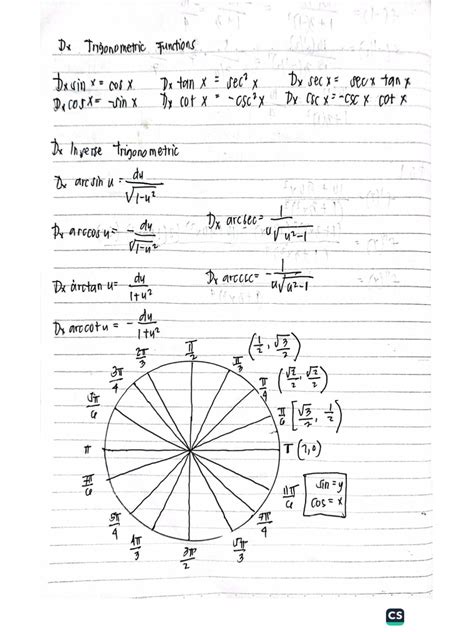 Dx Trigonometric Functions
Dx sin x = cos x   Dx tan x = sec² x   Dx sec x = sec x tan x
Dx cos x = -sin x   Dx cot x = -csc² x   Dx csc x = -csc x cot x
Dx Inverse Trigonometric
Dx arcsin u = du/√1-u²
Dx arccos u = - du/√1-u²   Dx arcsec = 1/u√u²-1
Dx arctan u = du/1+u²   Dx arccsc = - 1/u√u²-1
Dx arccot u = - du/1+u²
π/2
2π/3   π/3 (1/2, √3/2)
3π/4   π/4 (√2/2, √2/2)
5π/6   π/6 [√3/2, 1/2)
π   T (1,0)
7π/6   11π/6   sin = y
cos = x
5π/4   7π/4
4π/3   5π/3
3π/2
CS